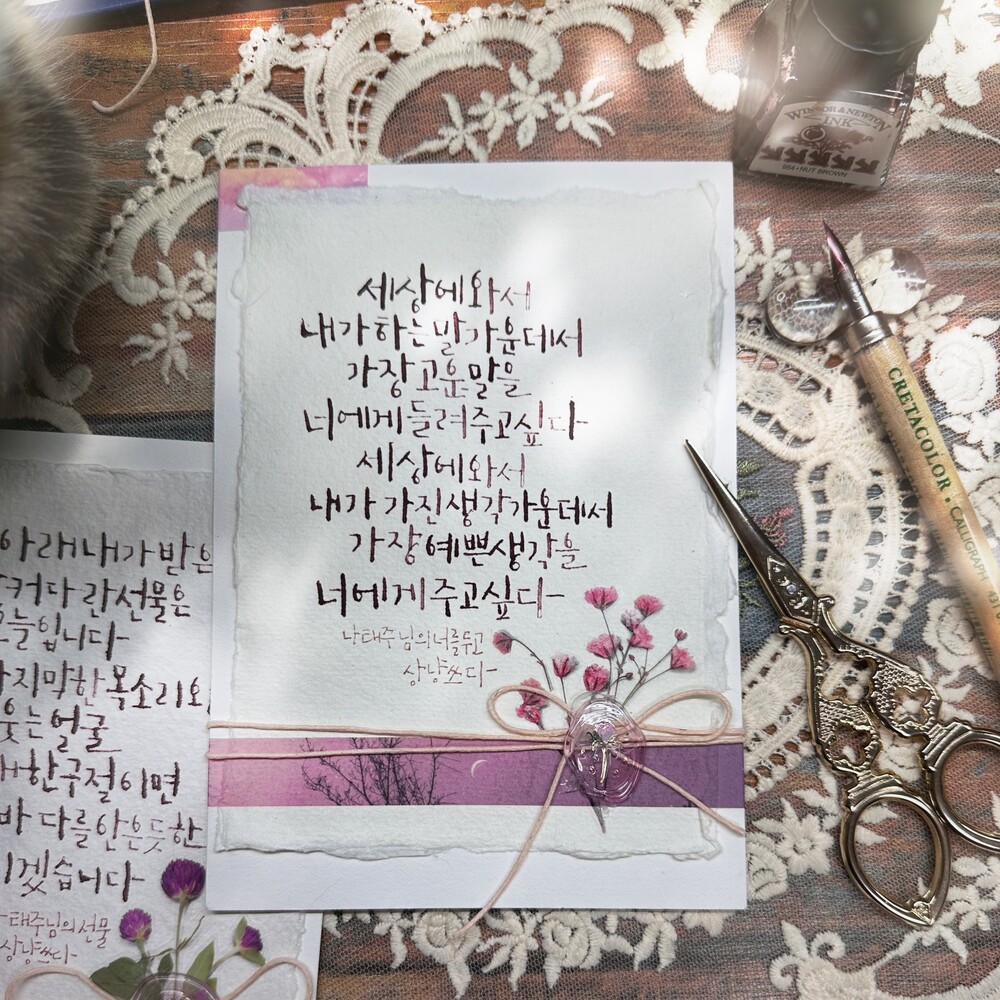 세상에 와서
내가 하는 말 가운데서
가장 고운 말을
너에게 들려주고 싶다
세상에 와서
내가 가진 생각 가운데서
가장 예쁜 생각을
너에게 주고 싶다
나태주님의 너를 두고
상냥쓰다
아래 내가 받은
커다란 선물은
오늘입니다
지막한 목소리와
웃는 얼굴
한 구절이면
바다를 안은 듯한
겠습니다
태주님의 선물
상냥쓰다
WINSOR & NEWTON
INK
NUT BROWN
CRETACOLOR • CALLIGRAPH